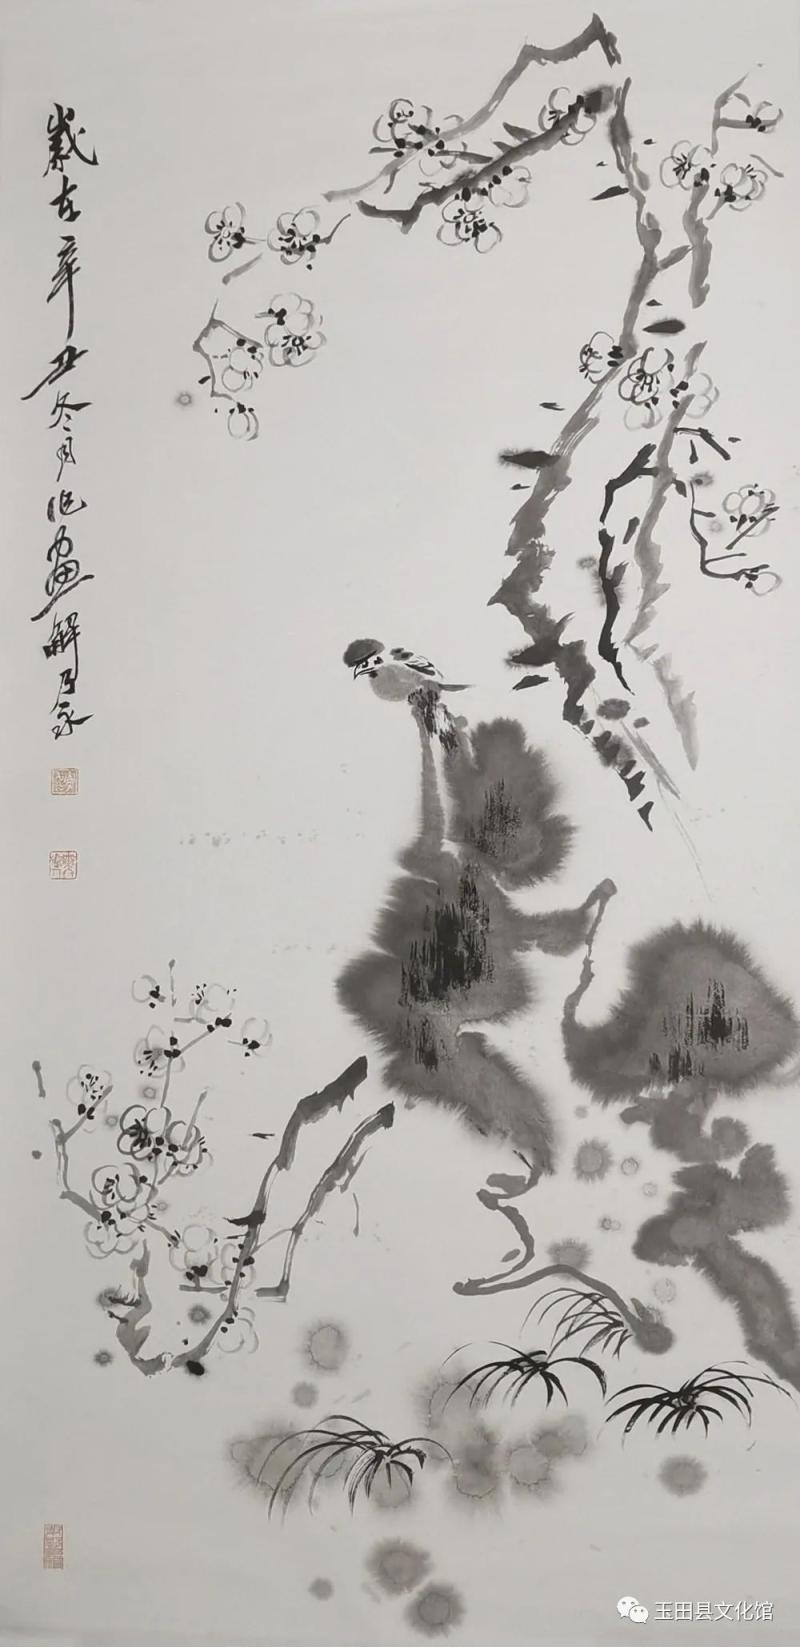 歲在辛丑冬月作畫解乃永
玉田县文化馆